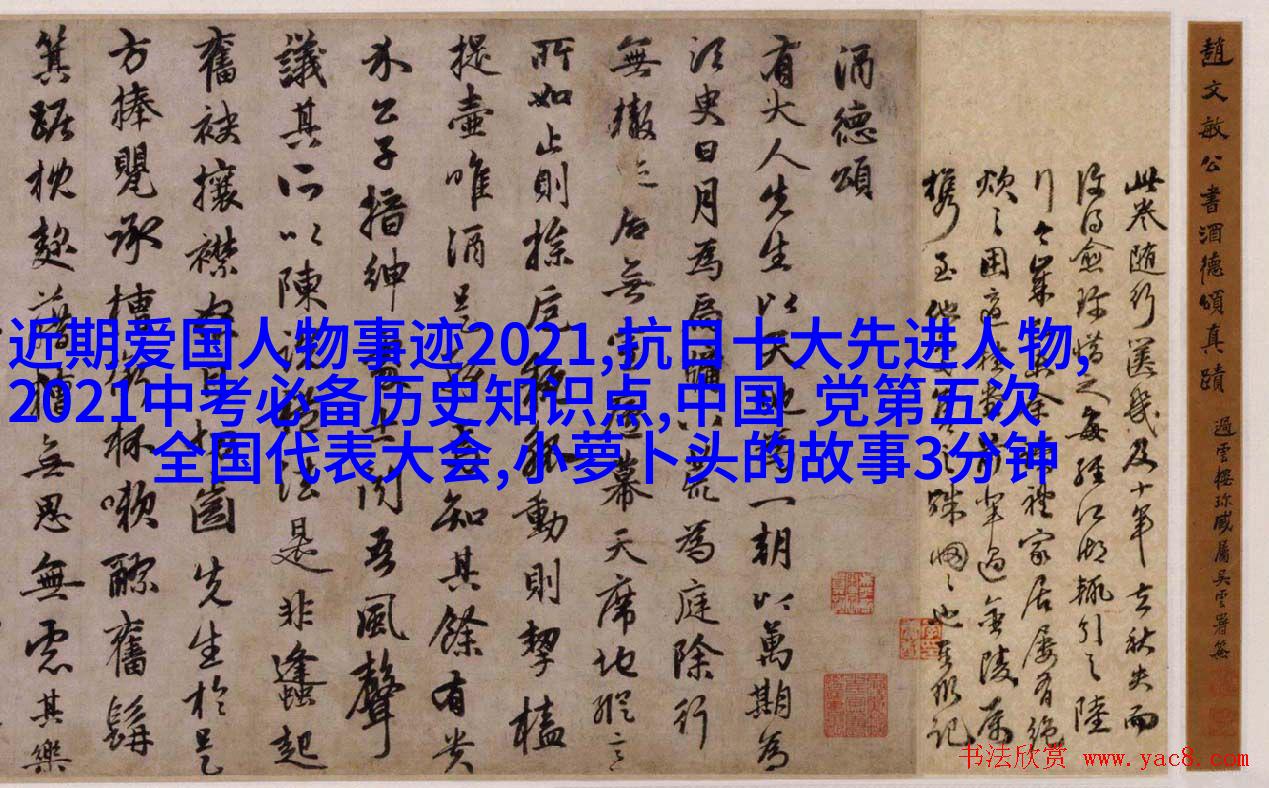 趙文敏公書酒德頌真蹟 過雲樓珍藏屬吳雲署簽
此卷随行篋幾及十年去秋失而
復得愈珍惜之每經江湖輒引之陸
酒德頌
有大人先生以天地為一朝以萬期為
須臾日月為扃牖以八荒為庭除行
無轍迹居無室廬幕天席地縱意
所如止則操卮執瓢動則挈榼
提壺唯酒是務焉知其餘有貴
介公子搢紳處士聞吾風聲
議其所以陳說禮法是非蠭起
奮袂攘襟怒目切齒先生於是
方捧甖承槽銜杯漱醪奮髯
箕踞枕麴藉糟無思無慮其樂
近期爱国人物事迹2021,抗日十大先进人物,
2021中考必备历史知识点,中国 党第五次
全国代表大会,小萝卜头的故事3分钟
书法欣赏 www.yac8.com